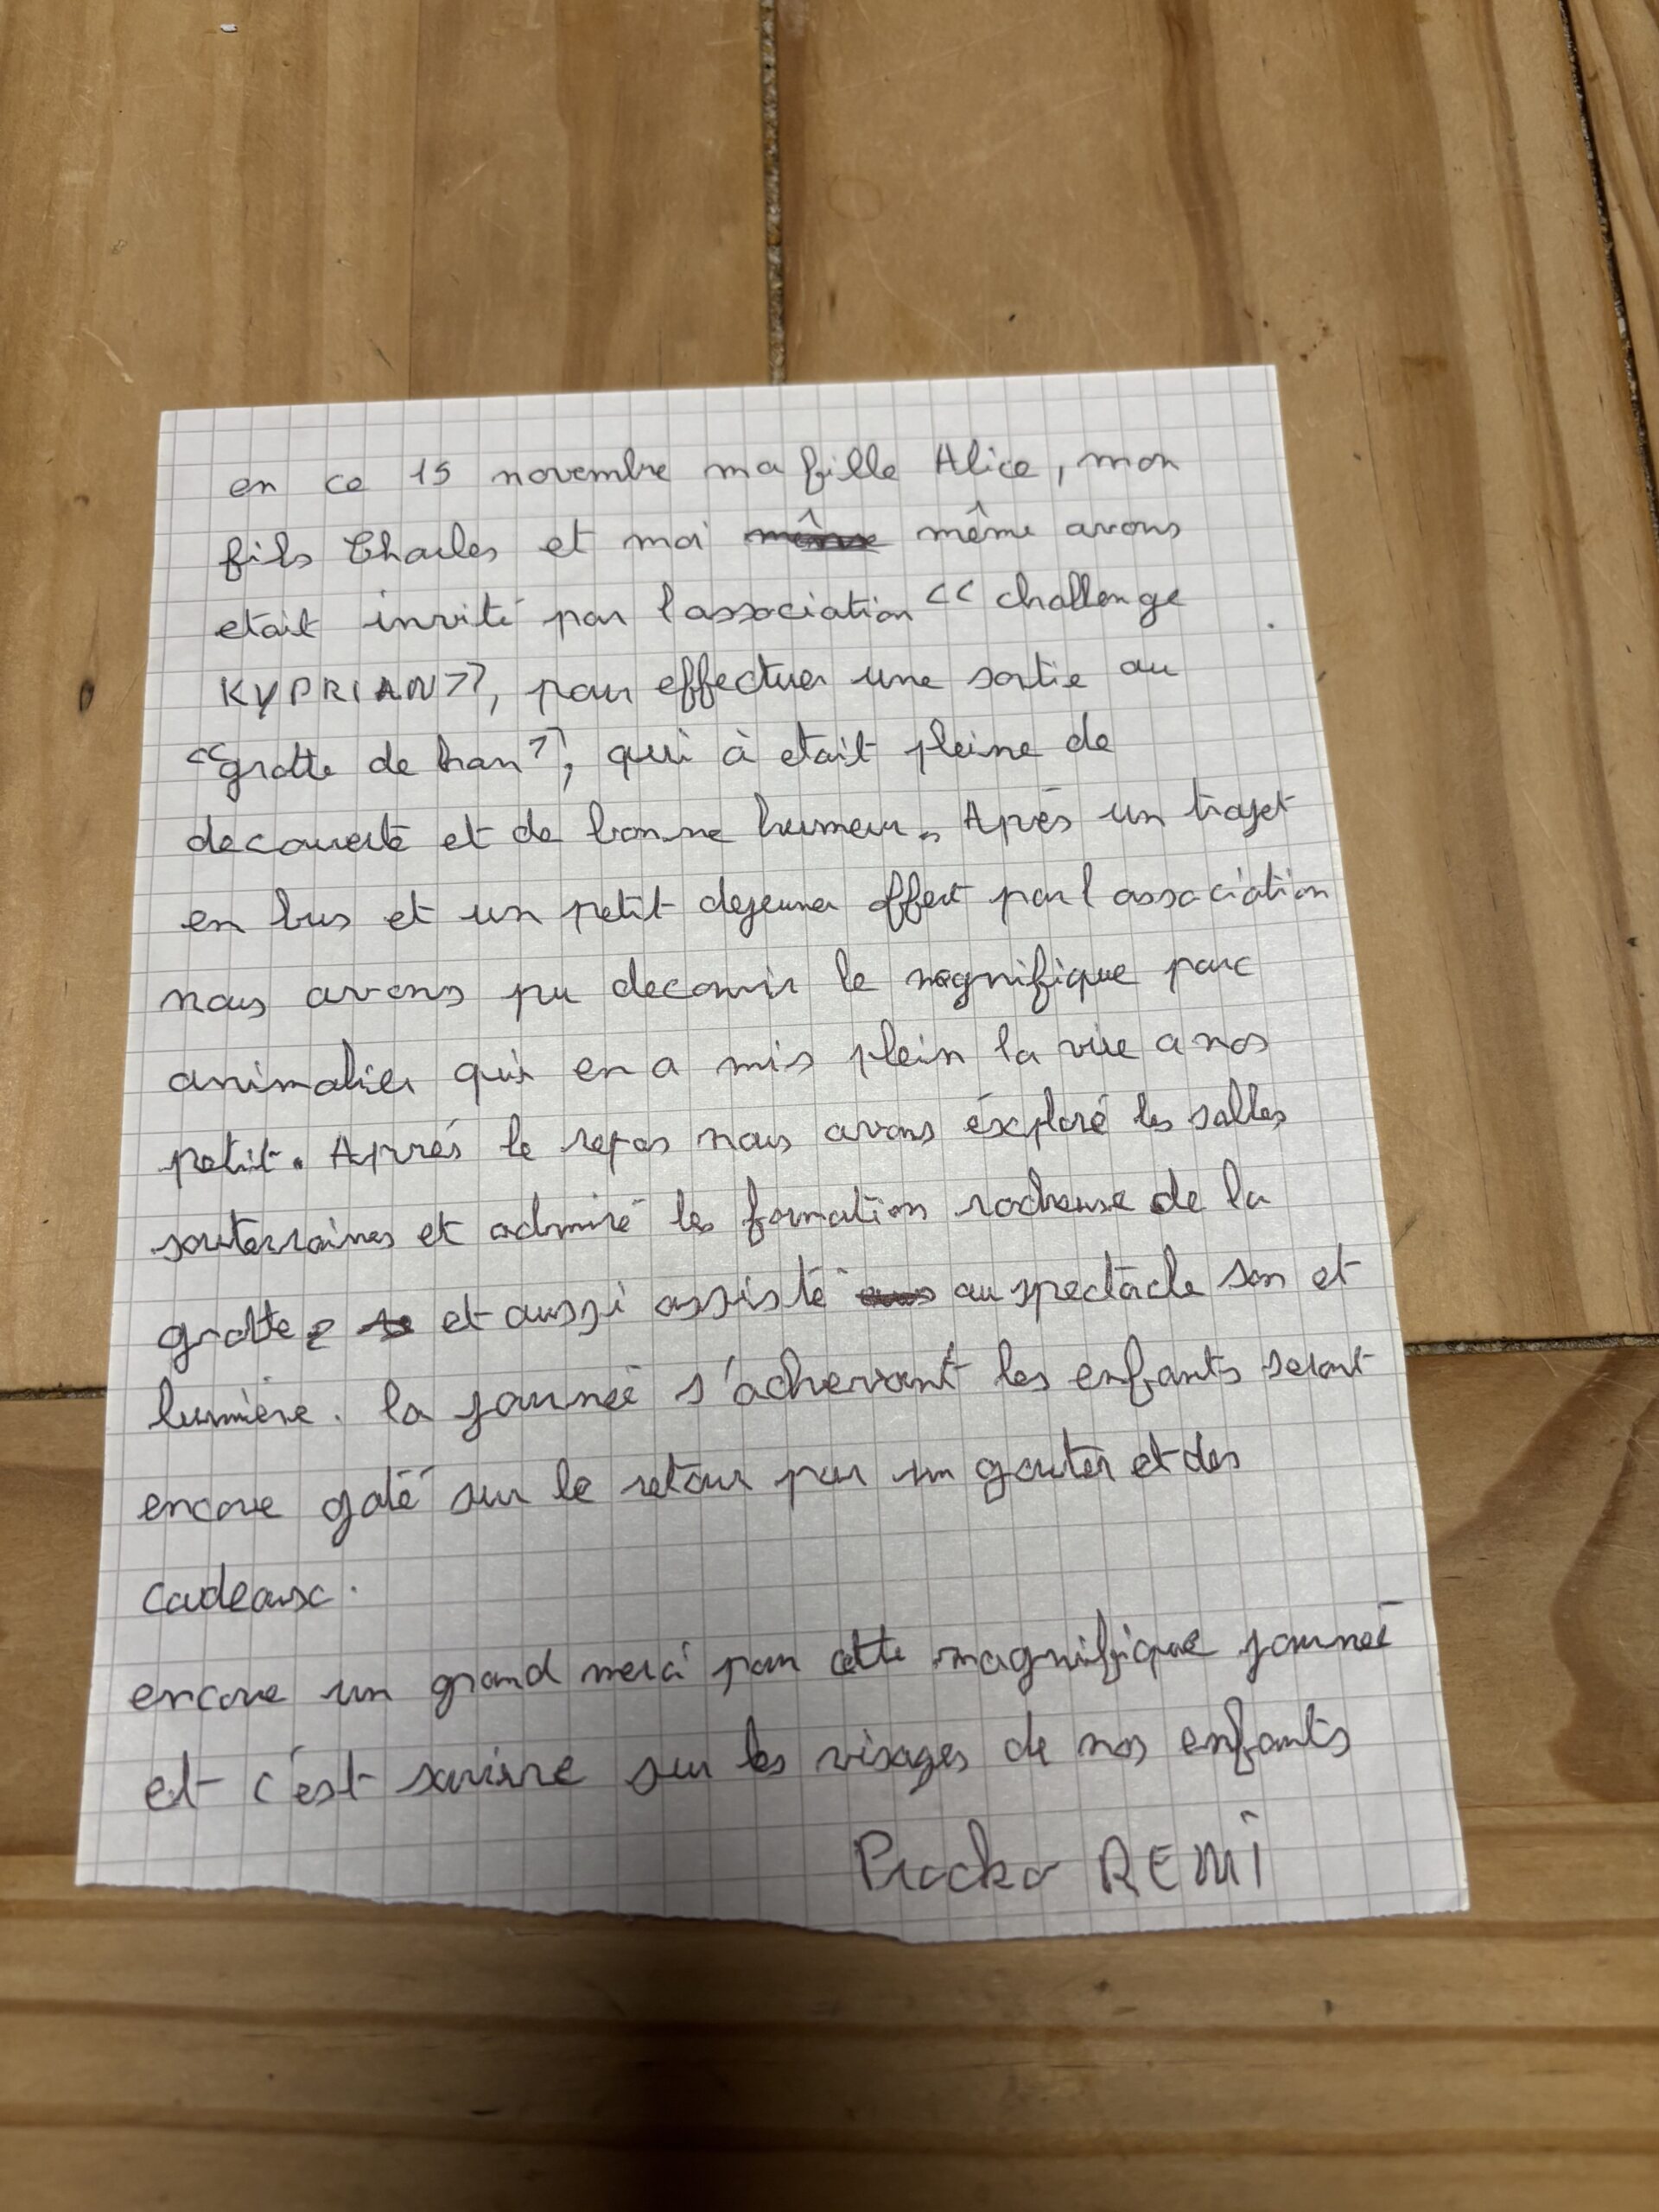 en ce 15 novembre ma fille Alice, mon
fils Charles et moi même avons
etait invité par l'association << challenge
KYPRIAN >>, pour effectuer une sortie au
<< grotte de han >>, qui à etait pleine de
decouverte et de bonne humeur. Après un trajet
en bus et un petit dejeuner offert par l association
nous avons pu decouvrir le magnifique parc
animalier qui en a mis plein la vue a nos
petit. Après le repas nous avons éxploré les salles
souterraines et admiré les formations rocheuse de la
grotte, et aussi assisté au spectacle son et
lumière. la journeé s'achevant les enfants seront
encore gaté sur le retour par un gouter et des
cadeaux.
encore un grand merci pour cette magnifique journeé
et c'est sourire sur les visages de nos enfants
REMI